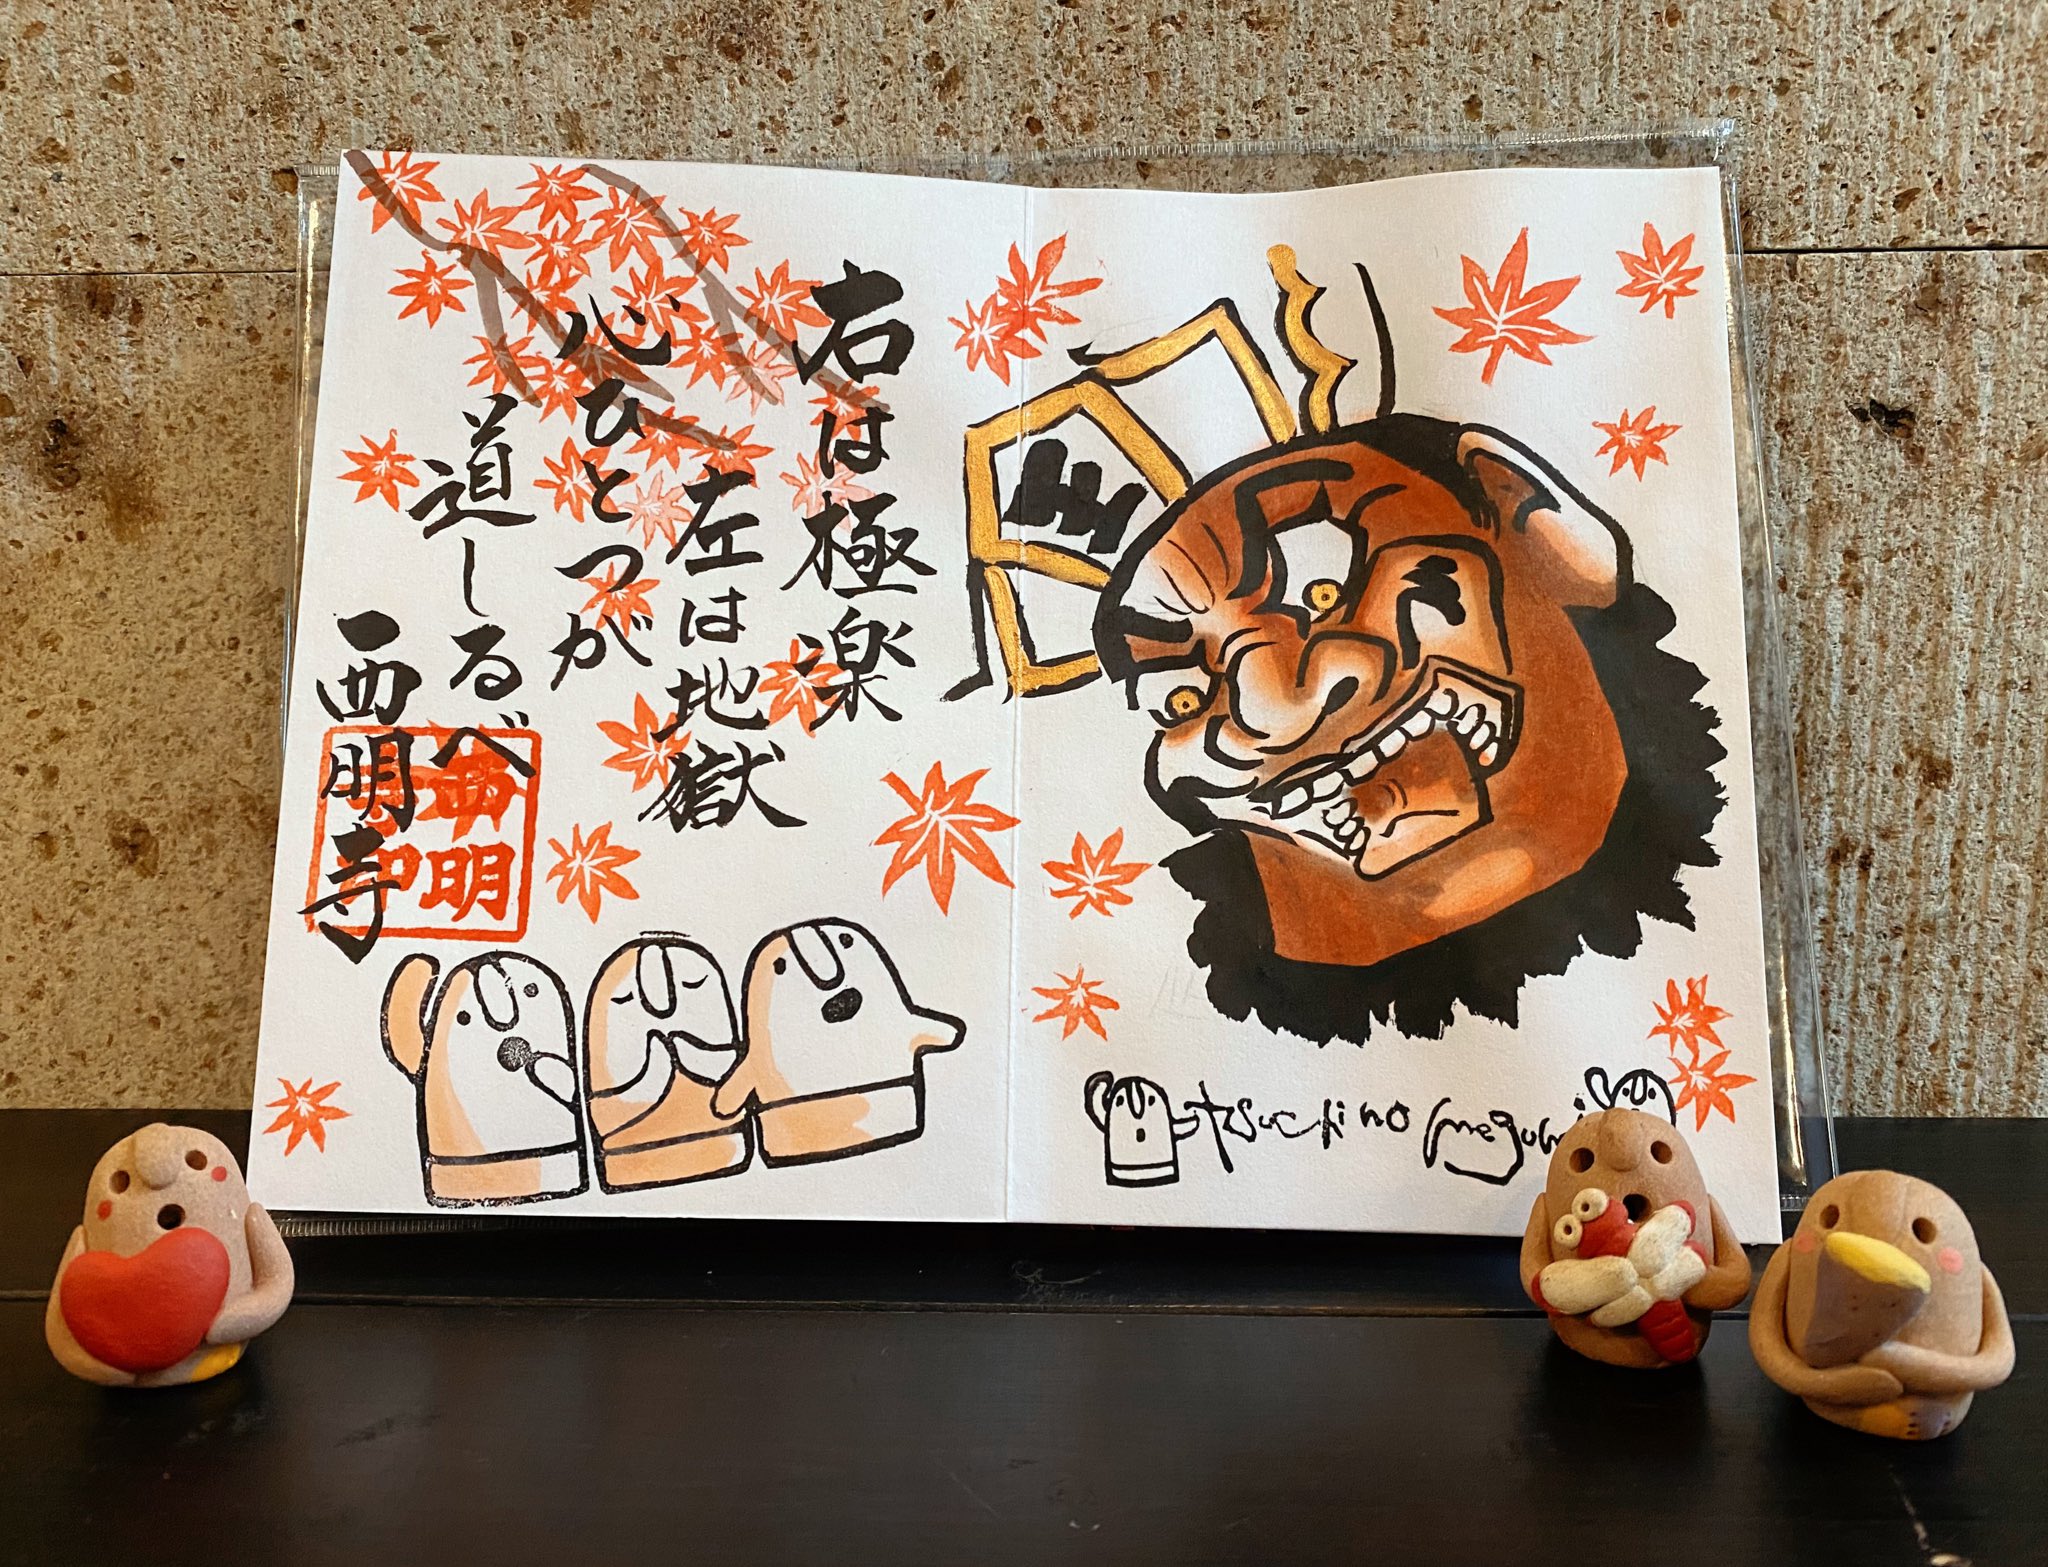 右は極楽
左は地獄
心ひとつが
道しるべ
西明寺
王
tsuchino megumi